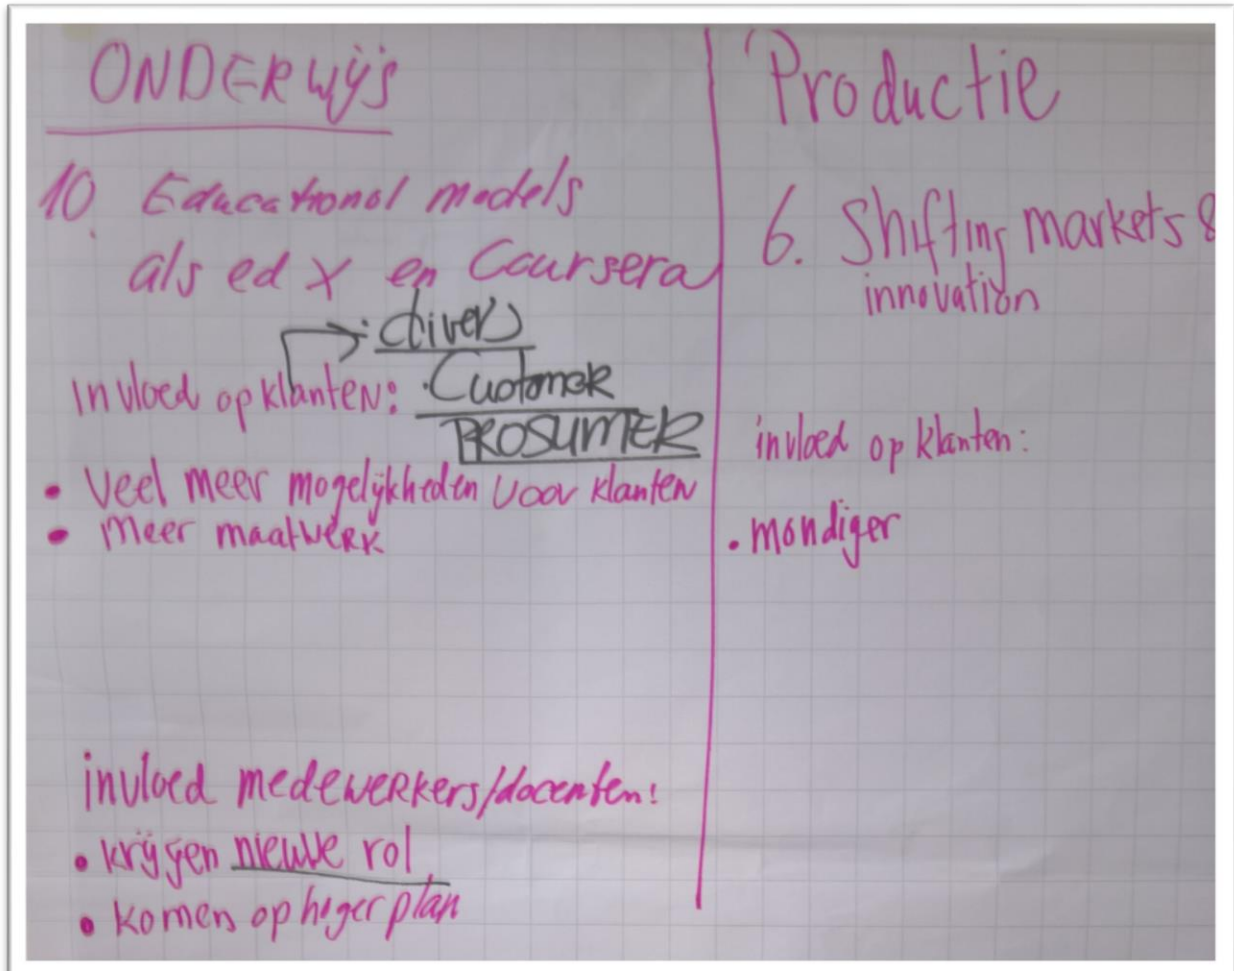 ONDERWIJS
10. Educational models
als ed X en Coursera
· divers
invloed op klanten: · Customer
PROSUMER
• Veel meer mogelijkheden voor klanten
• Meer maatwerk
invloed medewerkers/docenten:
• krijgen nieuwe rol
• komen op hoger plan
Productie
6. Shifting markets &
innovation
invloed op klanten:
• mondiger